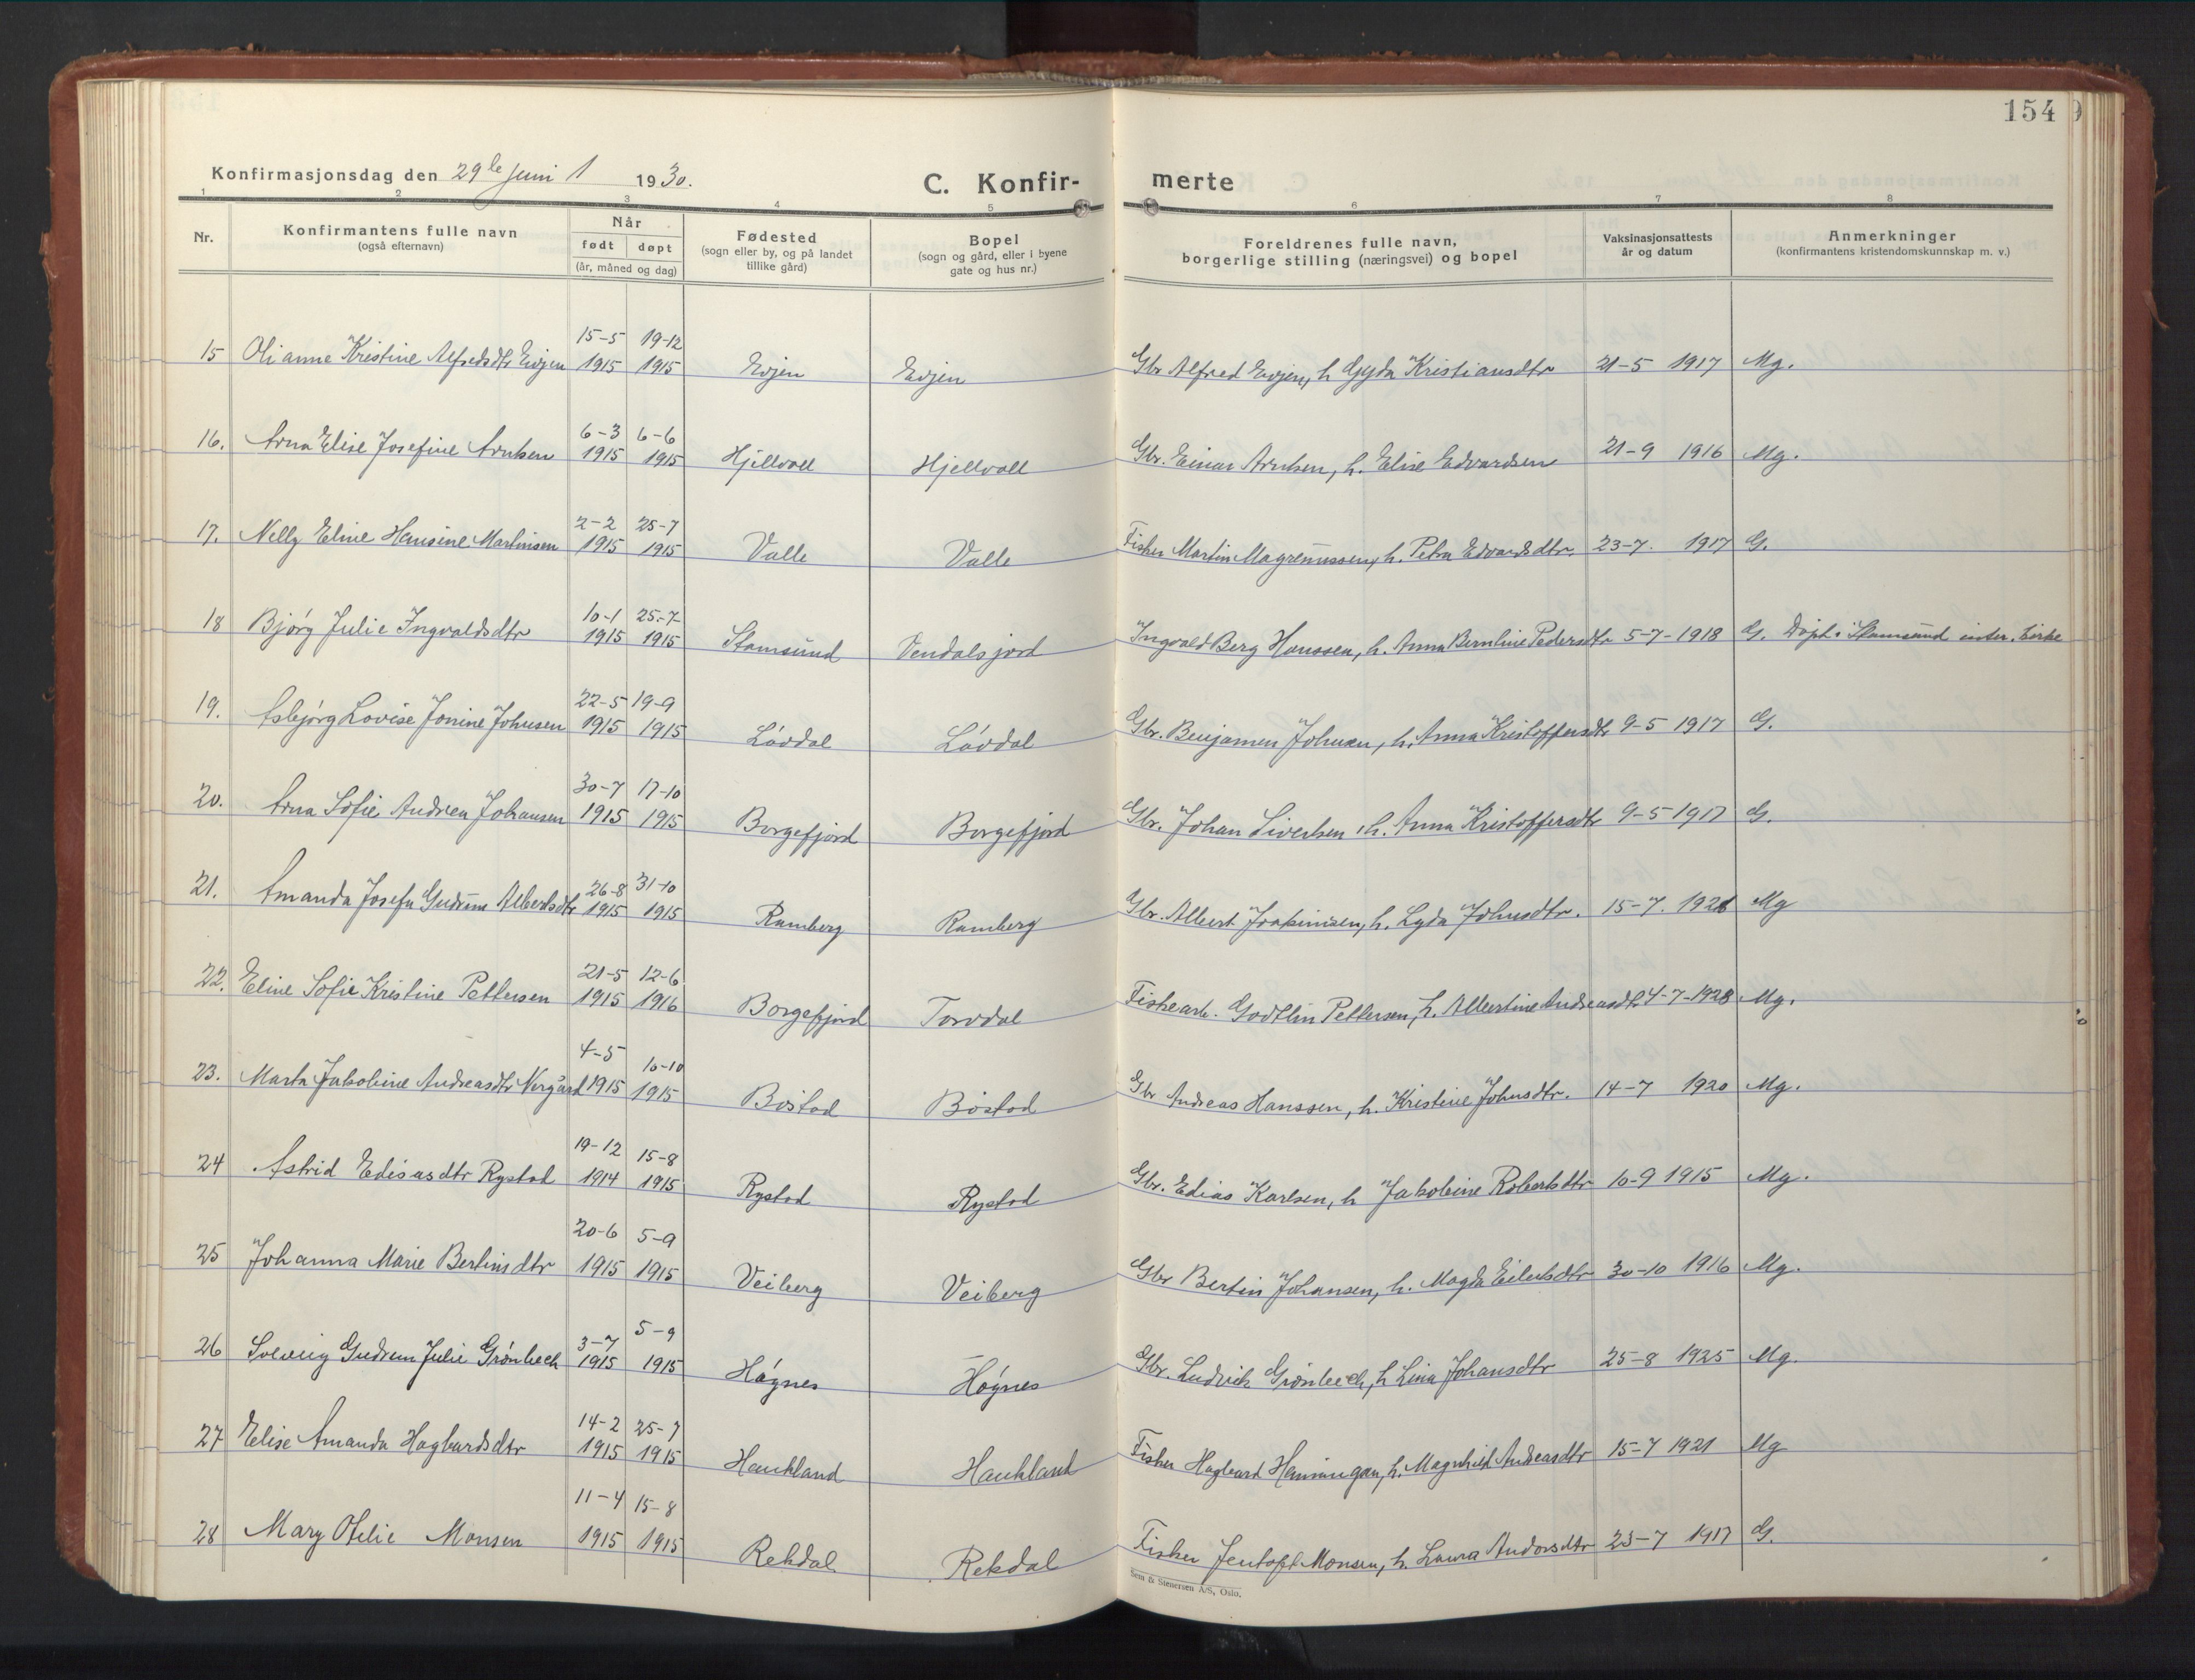 154
Konfirmasjonsdag den 29de juni 1930.
C. Konfir- merte
1 2 3 4 5 6 7 8
Nr.
Konfirmantens fulle navn
(også efternavn)
Når
født døpt
(år, måned og dag)
Fødested
(sogn eller by, og på landet
tillike gård)
Bopel
(sogn og gård, eller i byene
gate og hus nr.)
Foreldrenes fulle navn,
borgerlige stilling (næringsvei) og bopel
Vaksinasjonsattests
år og datum
Anmerkninger
(konfirmantens kristendomskunnskap m. v.)
15-5 19-12
15 Olianne Kristine Alfredsdtr Evjen 1915 1915 Evjen Evjen Gbr Alfred Evjen, h Gyda Kristiansdtr 21-5 1917 Mg.
6-3 6-6
16. Arna Elise Josefine Arntsen 1915 1915 Hjellvoll Hjellvoll Gbr. Einar Arntsen, h. Elise Edvardsen 21-9 1916 Mg.
2-2 25-7
17. Nelly Eline Hansine Martinsen 1915 1915 Valle Valle Fisker Martin Magnussen, h. Petra Edvardsdtr. 23-7. 1917 G.
10-1 25-7
18 Bjørg Julie Ingvaldsdtr 1915 1915 Stamsund Vendalsjord Ingvald Berg Hanssen, h. Anna Berntine Pedersdtr 5-7-1918 G. Døpt i Stamsund inter. kirke
22-5 19-9
19. Asbjørg Lovise Jonine Johnsen 1915 1915 Løvdal Løvdal Gbr. Benjamen Johnsen, h. Anna Kristoffersdtr 9-5 1917 G.
30-7 17-10
20. Arna Sofie Andrea Johansen 1915 1915 Borgefjord Borgefjord Gbr. Johan Sivertsen, h. Anna Kristoffersdtr 9-5 1917 G.
26-8 31-10
21. Amanda Josefa Gudrun Albertsdtr 1915 1915 Ramberg Ramberg Gbr. Albert Joakimsen, h. Lyda Johnsdtr. 15-7. 1921 Mg
21-5 12-6
22. Eline Sofie Kristine Pettersen 1915 1916 Borgefjord Torvdal Fiskearb. Godtlin Pettersen, h. Albertine Andreasdtr 4-7-1928 Mg.
4-5 10-10
23. Marta Jakobine Andreasdtr Nergård 1915 1915 Bøstad Bøstad Gbr Andreas Hanssen, h. Kristine Johnsdtr. 14-7 1920 Mg.
19-12 15-8
24 Astrid Ediasdtr Rystad 1914 1915 Rystad Rystad Gbr. Edias Karlsen, h Jakobine Robertsdtr 10-9 1915 Mg.
20-6 5-9
25 Johanna Marie Bertinsdtr 1915 1915 Veiberg Veiberg Gbr Bertin Johansen, h. Magda Eilertsdtr 30-10 1916 Mg.
3-7 5-9
26 Solveig Gudrun Julie Grønbech 1915 1915 Høgnes Høgnes Gbr. Ludvik Grønbech, h Lina Johansdtr 25-8 1925 Mg.
14-2 25-7
27 Elise Amanda Hagbardsdtr 1915 1915 Haukland Haukland Fisker Hagbard Henningsen, h. Magnhild Andreasdtr 15-7 1921 Mg
11-4 15-8
28 Mary Otelie Monsen 1915 1915 Rekdal Rekdal Fisker Jentoft Monsen, h. Laura Andorsdtr 23-7 1917 G.
Sem & Stenersen A/S, Oslo.